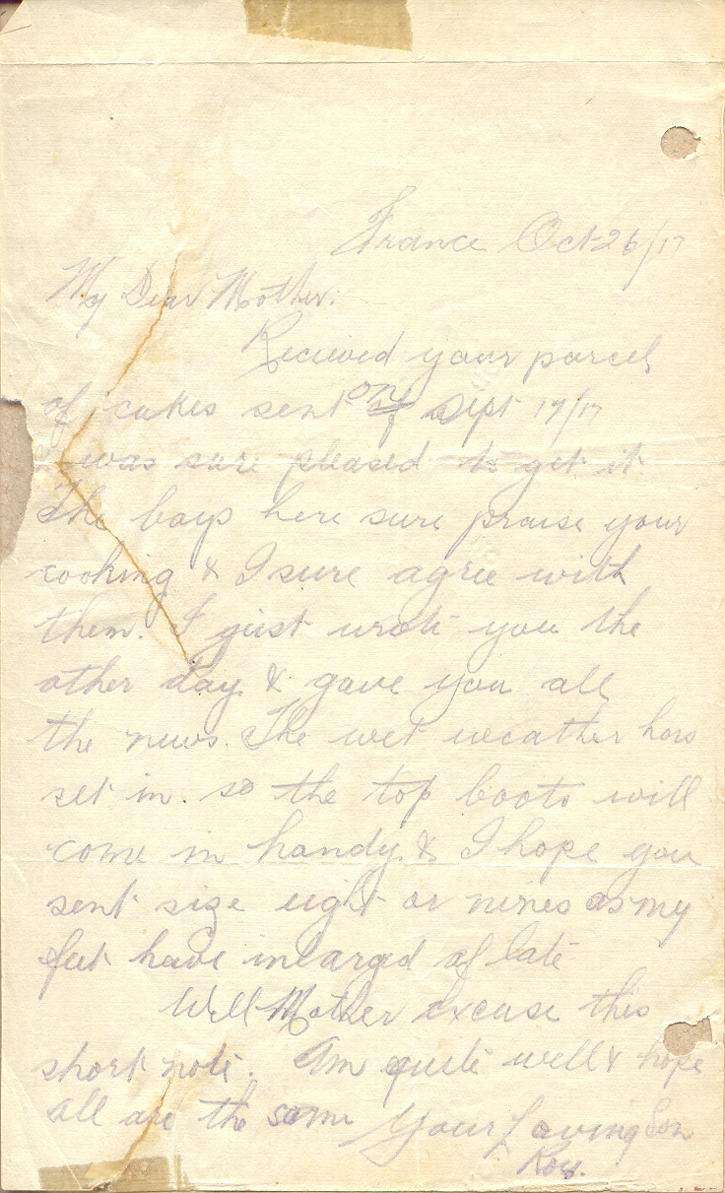 France Oct 26/17
My Dear Mother:
Recieved your parcel
of cakes sent on of Sept 17/17
was sure pleased to get it
The boys here sure praise your
cooking & I sure agree with
them. I just wrote you the
other day & gave you all
the news. The wet weather has
set in. so the top boots will
come in handy & I hope you
sent size eight or nines as my
feet have inlarged of late
Well Mother excuse this
short note. Am quite well & hope
all are the same Your Loving Son
Roy.